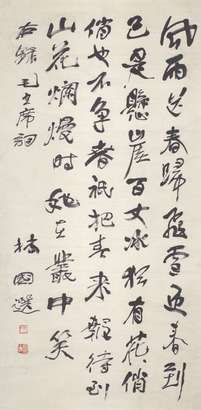 風雨送春歸飛雪迎春到
已是懸崖百丈冰猶有花俏
俏也不争春祇把春来報待到
山花爛熳时她在叢中笑
右録毛主席詞
國選